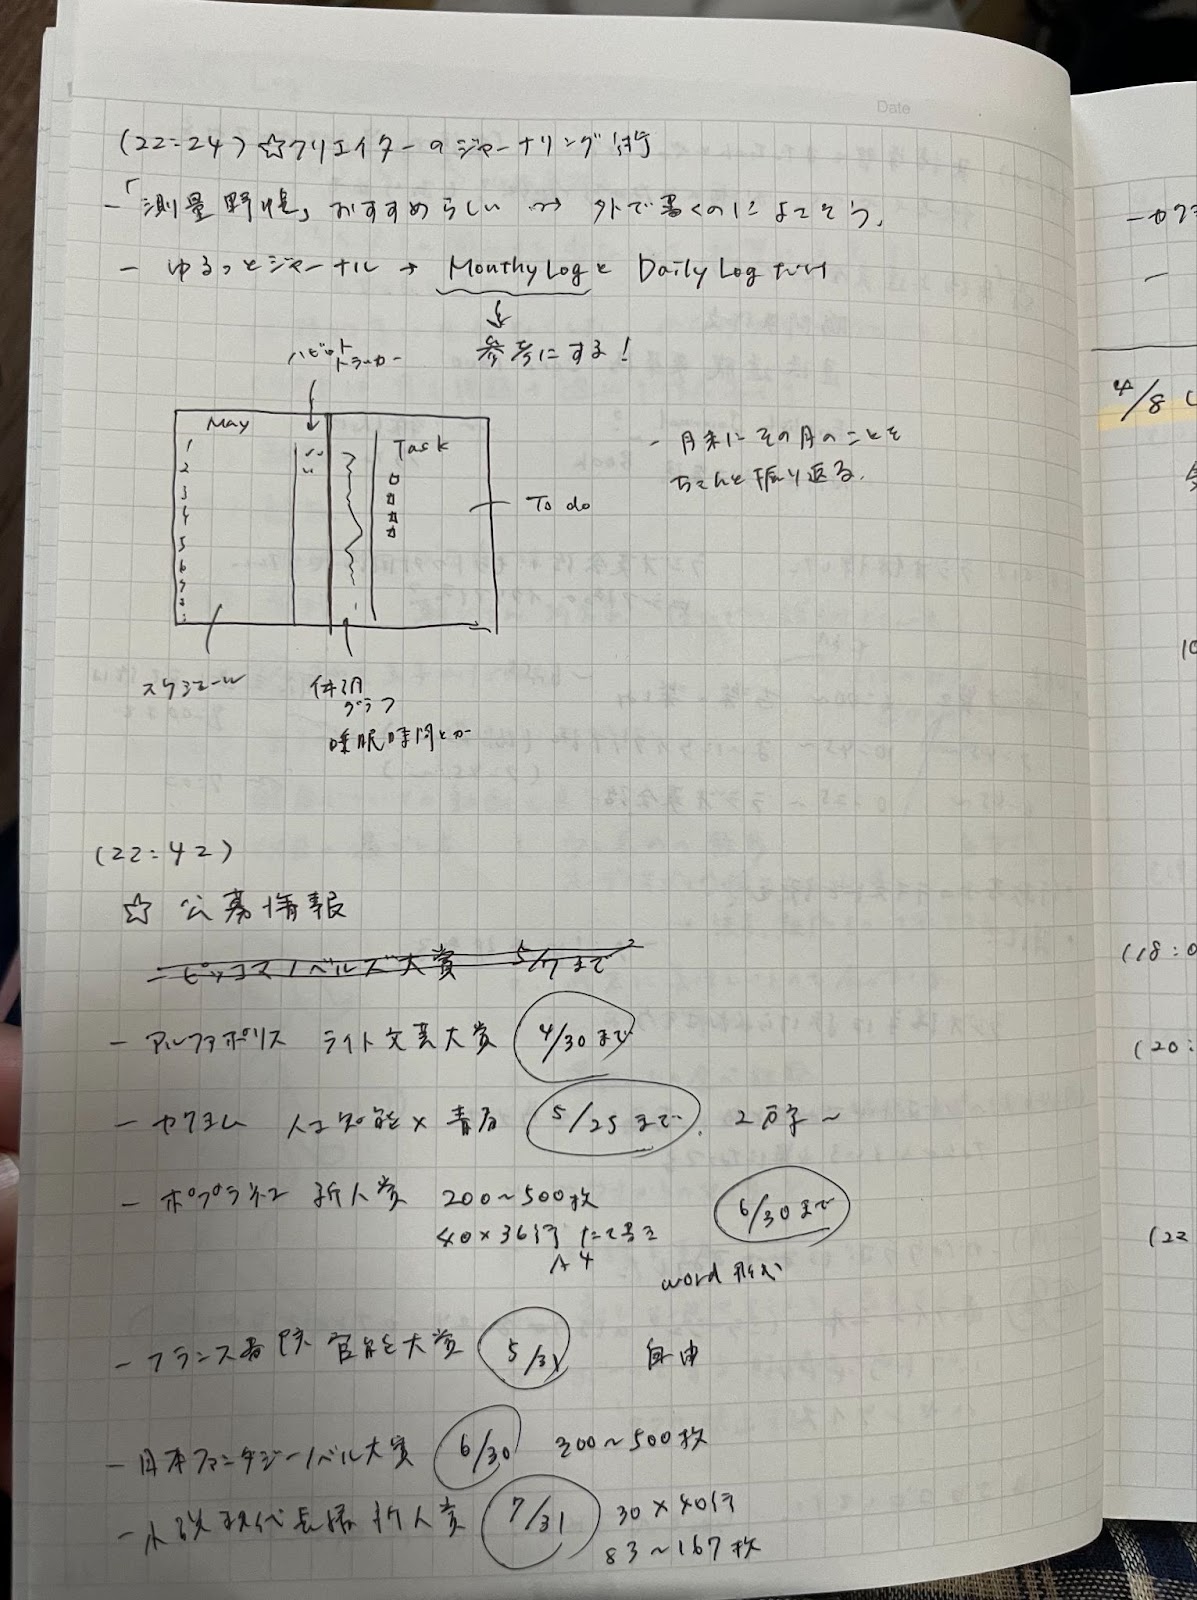 Date
(22:24) ☆クリエイターのジャーナリング術
-「測量野帳」おすすめらしい → 外で書くのによさそう。
- ゆるっとジャーナル → MonthyLogと DailyLogだけ
↓
参考にする!
ハビット
トラッカー
↓
May
Task
1
2
3
4
5
6
7
To do
- 月末にその月のことを
ちゃんと振り返る。
スケジュール
体調
グラフ
睡眠時間とか
(22:42)
☆ 公募情報
- ピッコマノベルズ大賞 5/7まで
- アルファポリス ライト文芸大賞 4/30まで
- カクヨム 人工知能×青春 5/25まで. 2万字~
- ポプラ 新人賞 200~500枚 6/30まで
40×36行 たて書き
A4
word形式
- フランス書院 官能大賞 5/31 自由
- 日本ファンタジーノベル大賞 6/30 300~500枚
- 小説現代長編新人賞 7/31 30×40行
83~167枚
4/8
(18:0
(20:
(22